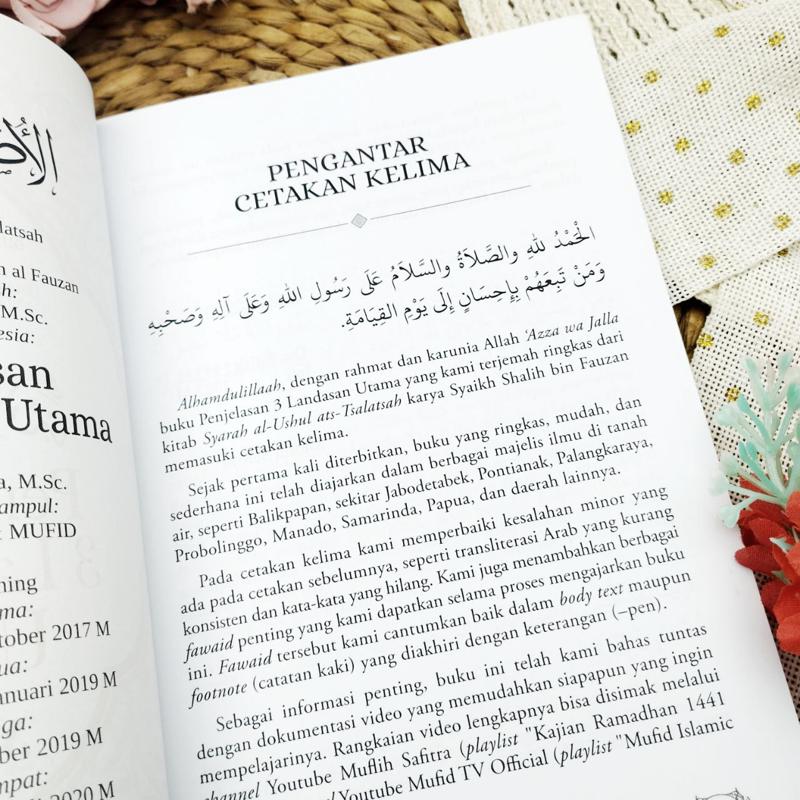 latsah
al Fauzan
M.Sc.
Utama
M.Sc.
MUFID
2017 M
2019 M
2019 M
2020 M
PENGANTAR
CETAKAN KELIMA
الْحَمْدُ للهِ والصَّلَاةُ والسَّلَامُ عَلَى رَسُولِ اللهِ وَعَلَى آلِهِ وَصَحْبِهِ
وَمَنْ تَبِعَهُمْ بِإِحسَانٍ إِلَى يَوْمِ القِيَامَةِ.
Alhamdulillaah, dengan rahmat dan karunia Allah ‘Azza wa Jalla
buku Penjelasan 3 Landasan Utama yang kami terjemah ringkas dari
kitab Syarah al-Ushul ats-Tsalatsah karya Syaikh Shalih bin Fauzan
memasuki cetakan kelima.
Sejak pertama kali diterbitkan, buku yang ringkas, mudah, dan
sederhana ini telah diajarkan dalam berbagai majelis ilmu di tanah
air, seperti Balikpapan, sekitar Jabodetabek, Pontianak, Palangkaraya,
Probolinggo, Manado, Samarinda, Papua, dan daerah lainnya.
Pada cetakan kelima kami memperbaiki kesalahan minor yang
ada pada cetakan sebelumnya, seperti transliterasi Arab yang kurang
konsisten dan kata-kata yang hilang. Kami juga menambahkan berbagai
fawaid penting yang kami dapatkan selama proses mengajarkan buku
ini. Fawaid tersebut kami cantumkan baik dalam body text maupun
footnote (catatan kaki) yang diakhiri dengan keterangan (–pen).
Sebagai informasi penting, buku ini telah kami bahas tuntas
dengan dokumentasi video yang memudahkan siapapun yang ingin
mempelajarinya. Rangkaian video lengkapnya bisa disimak melalui
channel Youtube Muflih Safitra (playlist "Kajian Ramadhan 1441
Youtube Mufid TV Official (playlist "Mufid Islamic